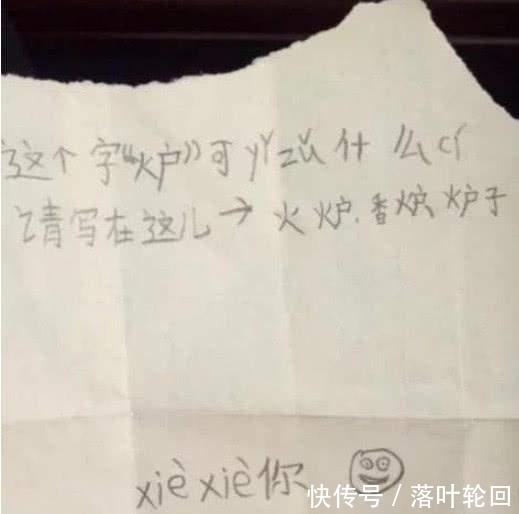 这个字“炉”可yǐ zǔ 什么cí
请写在这儿→火炉.香炉、炉子
xiè xiè你
快传号/落叶轮回